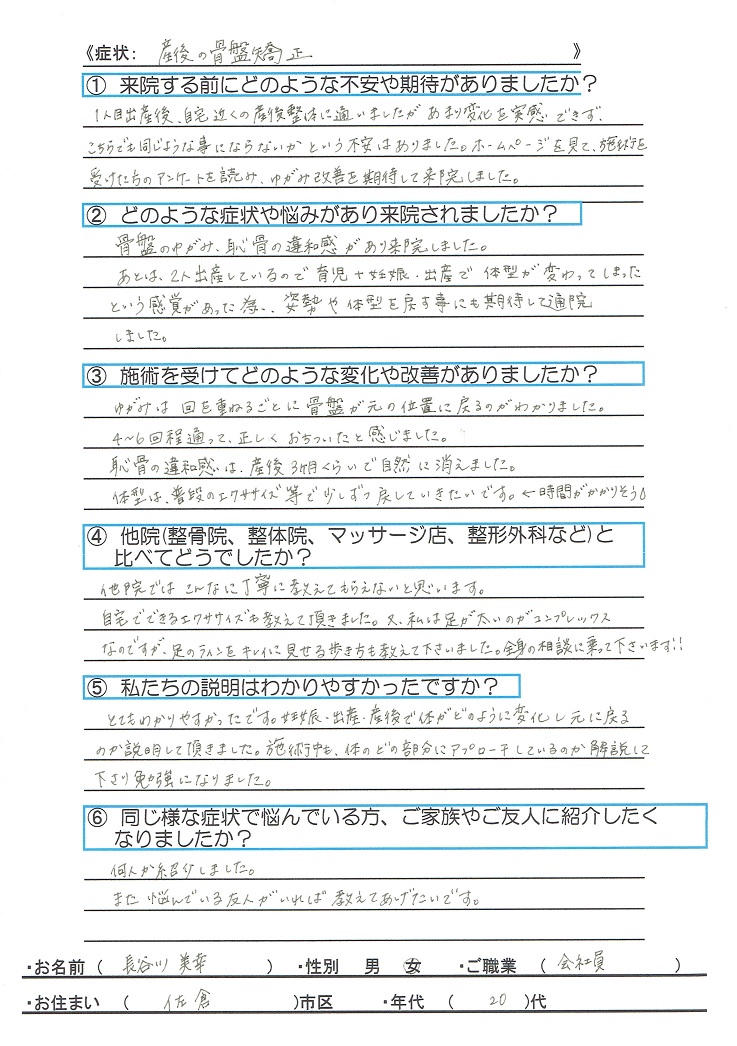 《症状： 産後の骨盤矯正 》
① 来院する前にどのような不安や期待がありましたか？
1人目出産後、自宅近くの産後整体に通いましたがあまり変化を実感できず、
こちらでも同じような事にならないかという不安はありました。ホームページを見て、施術を
受けた方のアンケートを読み、ゆがみ改善を期待して来院しました。
② どのような症状や悩みがあり来院されましたか？
骨盤のゆがみ、恥骨の違和感があり来院しました。
あとは、2人出産しているので育児＋妊娠・出産で体型が変わってしまった
という感覚があった為、姿勢や体型を戻す事にも期待して通院
しました。
③ 施術を受けてどのような変化や改善がありましたか？
ゆがみは回を重ねるごとに骨盤が元の位置に戻るのがわかりました。
4～6回程通って、正しくおちついたと感じました。
恥骨の違和感は、産後3ヶ月くらいで自然に消えました。
体型は、普段のエクササイズ等で少しずつ戻していきたいです。←時間がかかりそう
④ 他院(整骨院、整体院、マッサージ店、整形外科など)と
比べてどうでしたか？
他院ではこんなに丁寧に教えてもらえないと思います。
自宅でできるエクササイズも教えて頂きました。又、私は足が太いのがコンプレックス
なのですが、足のラインをキレイに見せる歩き方も教えて下さいました。全身の相談に乗って下さいます!!
⑤ 私たちの説明はわかりやすかったですか？
とてもわかりやすかったです。妊娠・出産・産後で体がどのように変化し元に戻る
のか説明して頂きました。施術中も、体のどの部分にアプローチしているのか解説して
下さり勉強になりました。
⑥ 同じ様な症状で悩んでいる方、ご家族やご友人に紹介したく
なりましたか？
何人か紹介しました。
また悩んでいる友人がいれば教えてあげたいです。
・お名前（ 長谷川 美幸 ） ・性別 男 女 ・ご職業 （ 会社員 ）
・お住まい （ 佐倉 )市区 ・年代 （ 20 )代